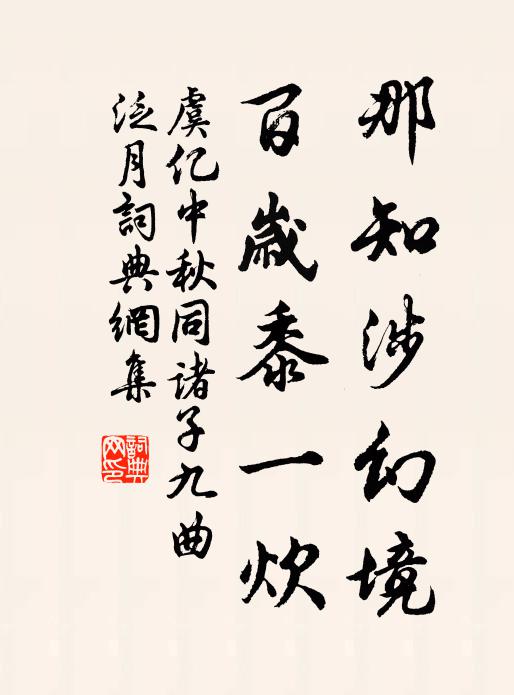 那知涉幻境
百歲黍一炊
虞仡中秋同諸子九曲
泛月詞典網集
詞典网印